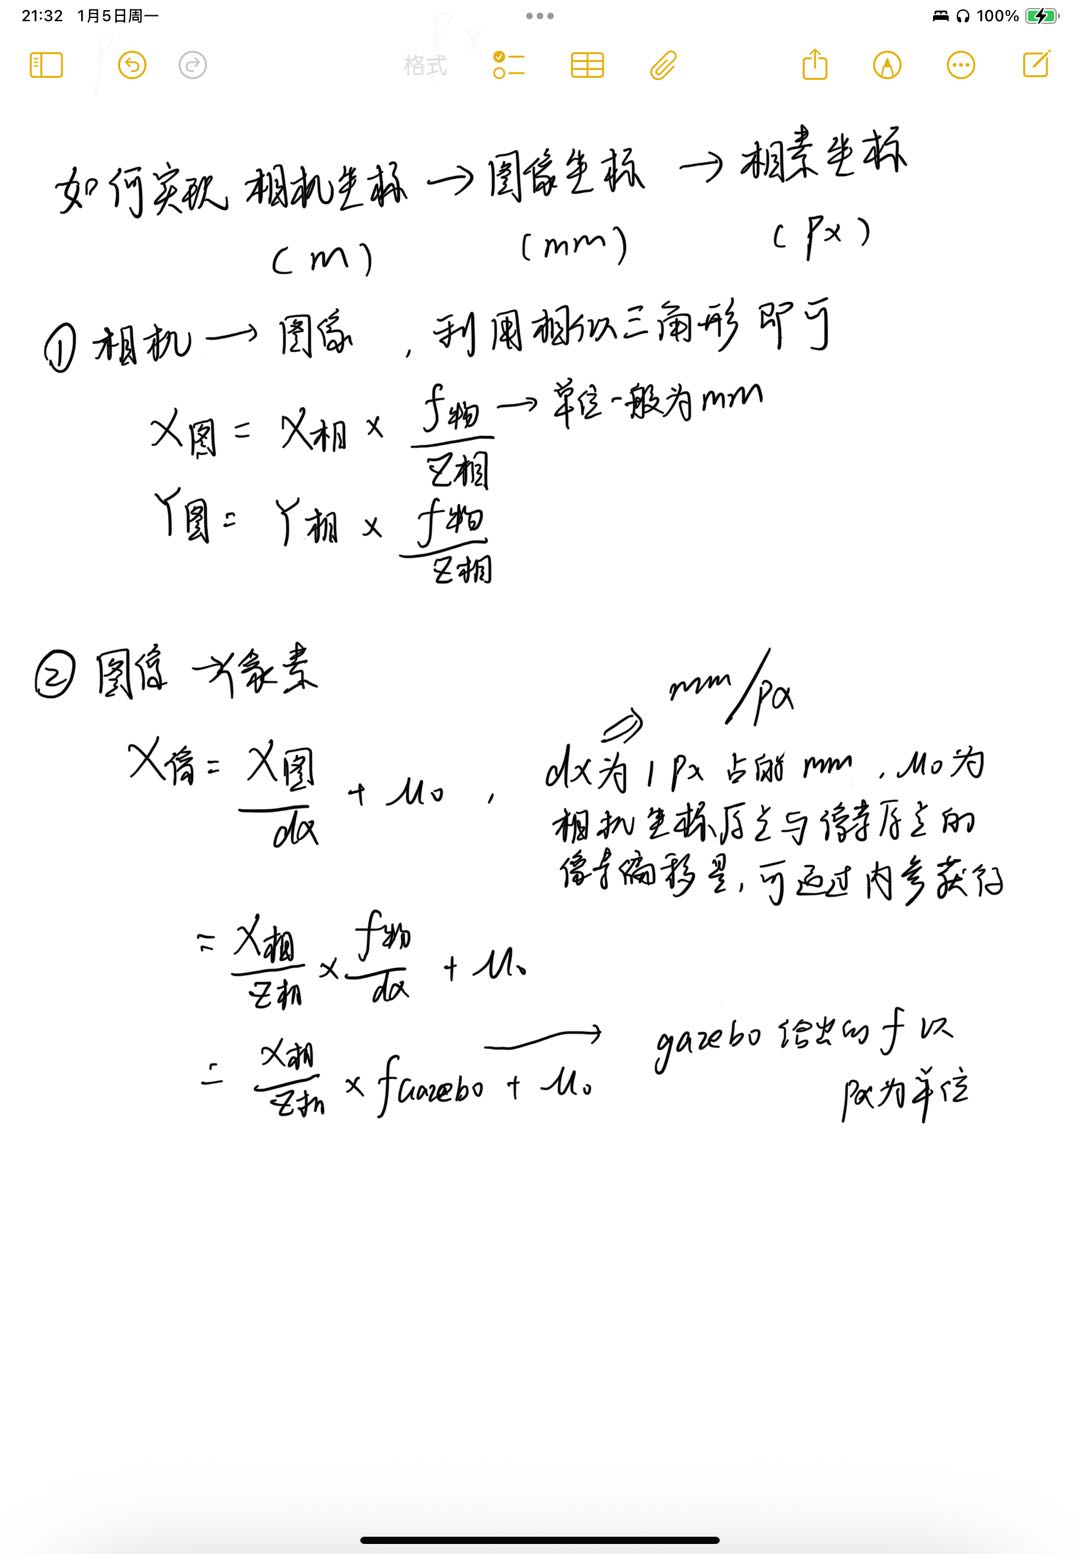 21:32 1月5日周一
100%
格式
如何实现 相机坐标 → 图像坐标 → 相素坐标
(m) (mm) (px)
① 相机 → 图像 , 利用相似三角形即可
X图 = X相 × f物/Z相 → 单位一般为mm
Y图 = Y相 × f物/Z相
② 图像 → 像素
mm/px
X像 = X图/dx + u₀ , dx为1px占的mm , u₀为
相机坐标原点与像素原点的
像素偏移量, 可通过内参获得
= X相/Z相 × f物/dx + u₀
= X相/Z相 × fGazebo + u₀ → gazebo给出的f以
px为单位